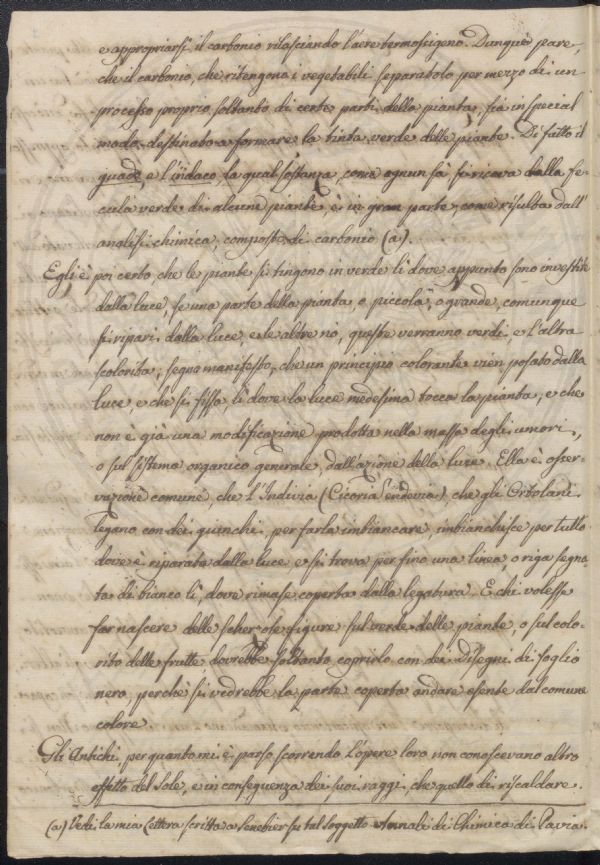 e appropriarsi il carbonio rilasciando l'aere termossigeno. Dunque pare,
che il carbonio, che ritengono i vegetabili separatolo per mezzo di un
processo proprio soltanto di certe parti della pianta, sia in special
modo destinato a formare la tinta verde delle piante. Di fatto il
guado, e l'indaco, la qual sostanza, come ognun sà si ricava dalla fe-
cula verde di alcune piante, è in gran parte, come risulta dall'
anglisi chimica, composto di carbonio (a).
Egli è poi certo che le piante si tingono in verde lì dove appunto sono investite
dalla luce, se una parte della pianta, o piccola, o grande, comunque
si ripari dalla luce, e le altre nò, queste verranno verdi, e l'altra
scolorita; segno manifesto, che un principio colorante vien posato dalla
luce, e che si fissa lì dove la luce medesima tocca la pianta, e che
non è già una modificazione prodotta nella massa degli umori,
o sul sistema organico generale, dall'azione della luce. Ella è osser-
vazione comune, che l'Indivia (Cicoria endevia) che gli Ortolani
legano con dei giunchi per farla imbiancare, imbianchisce per tutto
dove è riparata dalla luce e si trova per fino una linea o riga segna-
ta di bianco lì dove rimase coperta dalla legatura. E chi volesse
far nascere delle scherzose figure sul verde delle piante, o sul colo-
rito delle frutte dovrebbe soltanto coprirlo con dei disegni di foglio
nero, perchè si vedrebbe la parte coperta andare esente dal comune
colore.
Gli Antichi, per quanto mi è parso scorrendo l'opere loro non conoscevano altro
effetto del Sole, e in conseguenza dei suoi raggi, che quello di riscaldare.
(a) Vedi la mia Lettera scritta a Senebier su tal soggetto Annali di Chimica di Pavia.